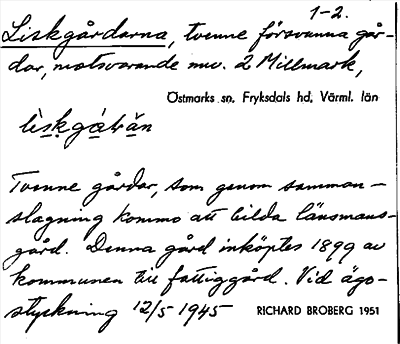 1-2.
Liskgårdarna, tvenne försvunna går-
dar, motsvarande nuv. 2 Millmark,
Östmarks sn. Fryksdals hd, Värml. län
Tvenne gårdar, som genom samman-
slagning kommo att bilda länsmans-
gård. Denna gård inköptes 1899 av
kommunen till fattiggård. Vid ägo-
styckning 12/5 1945
RICHARD BROBERG 1951